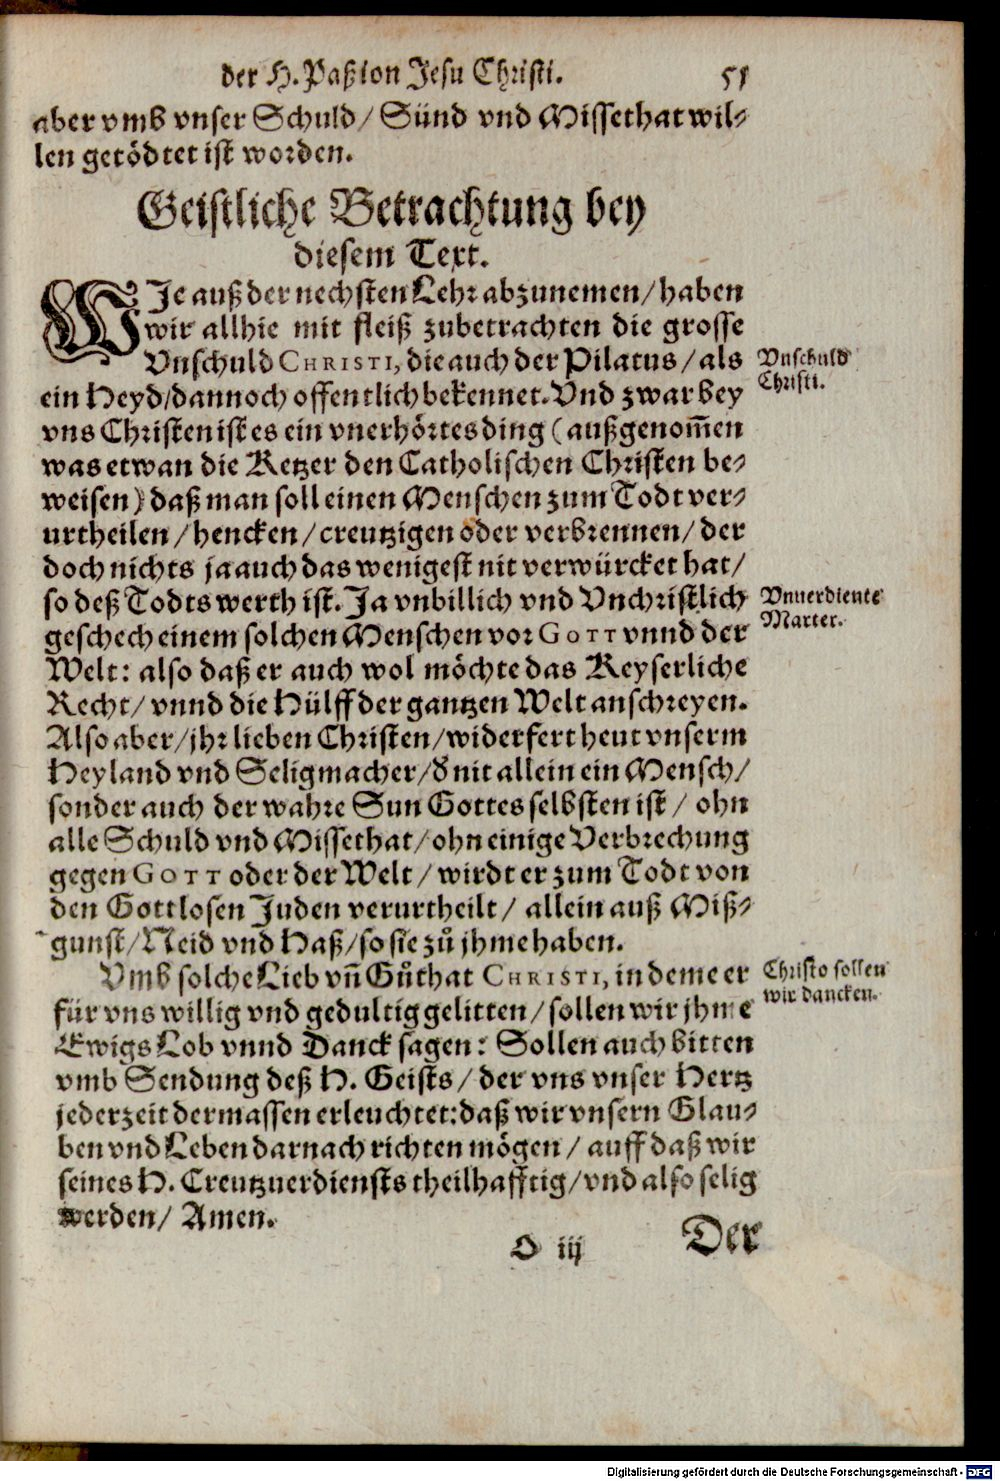 der H. Paßion Jesu Christi. 51
aber vmb vnser Schuld/ Sünd vnd Missethat wil-
len getödtet ist worden.
Geistliche Betrachtung bey
diesem Text.
WJe auß der nechsten Lehr abzunemen/ haben
wir allhie mit fleiß zubetrachten die grosse
Vnschuld CHRISTI, die auch der Pilatus/ als
Vnschuld
Christi.
ein Heyd/ dannoch offentlich bekennet. Vnd zwar bey
vns Christen ist es ein vnerhörtes ding (außgenom̃en
was etwan die Ketzer den Catholischen Christen be-
weisen) daß man soll einen Menschen zum Todt ver-
urtheilen/ hencken/ creutzigen oder verbrennen/ der
doch nichts ja auch das wenigest nit verwürcket hat/
so deß Todts werth ist. Ja vnbillich vnd Vnchristlich
Vnuerdiente
Marter.
geschech einem solchen Menschen vor GOTT vnnd der
Welt: also daß er auch wol möchte das Keyserliche
Recht/ vnnd die Hülff der gantzen Welt anschreyen.
Also aber/ jhr lieben Christen/ widerfert heut vnserm
Heyland vnd Seligmacher/ d' nit allein ein Mensch/
sonder auch der wahre Sun Gottes selbsten ist/ ohn
alle Schuld vnd Missethat/ ohn einige Verbrechung
gegen GOTT oder der Welt/ wirdt er zum Todt von
den Gottlosen Juden verurtheilt/ allein auß Miß-
gunst/ Neid vnd Haß/ so sie zů jhme haben.
Vmb solche Lieb vñ Gůthat CHRISTI, in deme er
Christo sollen
wir dancken.
für vns willig vnd gedultig gelitten/ sollen wir jhme
Ewigs Lob vnnd Danck sagen: Sollen auch bitten
vmb Sendung deß H. Geists/ der vns vnser Hertz
jederzeit dermassen erleuchtet: daß wir vnsern Glau-
ben vnd Leben darnach richten mögen/ auff daß wir
seines H. Creutzuerdiensts theilhafftig/ vnd also selig
werden/ Amen.
O iij Der
Digitalisierung gefördert durch die Deutsche Forschungsgemeinschaft - DFG